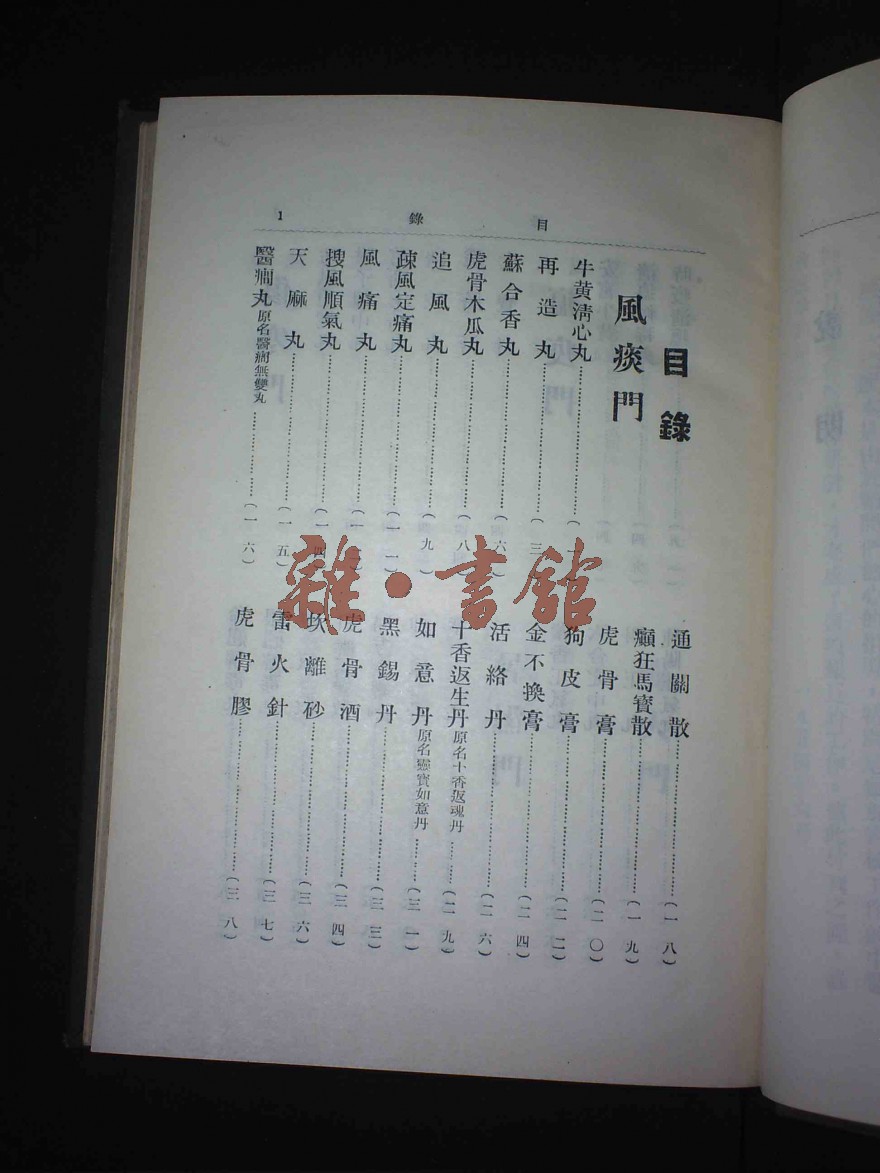 目錄 1
目錄
風痰門
牛黃清心丸……(一
再造丸……(三
蘇合香丸……(六
虎骨木瓜丸……(八
追風丸……(九
疎風定痛丸……(一一)
風痛丸……(一
搜風順氣丸……(一四
天麻丸……(一五)
醫癇丸原名醫癇無雙丸……(一六)
通關散……(一八)
癲狂馬寶散……(一九)
虎骨膏……(二〇)
狗皮膏……(二二)
金不換膏……(二四)
活絡丹……(二六)
十香返生丹原名十香返魂丹……(二九)
如意丹原名靈寶如意丹……(三一)
黑錫丹……(三三)
虎骨酒……(三四)
坎離砂……(三六)
雷火針……(三七)
虎骨膠……(三八)
雜·書館